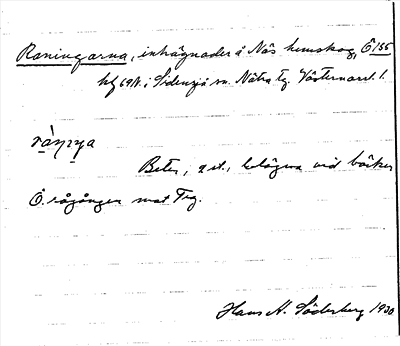 Raningarna, inhägnader å Näs hemskog, Ö 155
hfl 69N. i Sidensjö sn. Nätra tg. Västernorrl. l.
Beten, 2 st., belägna vid bäcken
Ö. rågången mot Trg.
Hans N. Söderberg 1930